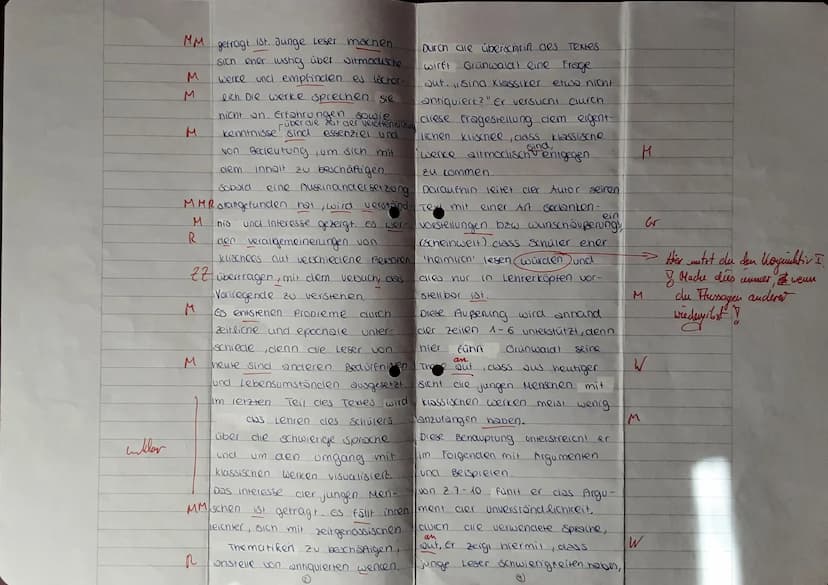 MM getragt ist. Junge Leser machen
sich eher lustig über altmodische
M Werke und empfinden es lächer-
M lich. Die Werke sprechen sie
nicht an. Erfahrungen sowie
über die Zeit der
M Kenntnisse sind essenziell und
von Bedeutung, um sich mit
dem Inhalt zu beschäftigen
Sobald eine Auseinandersetzung
MMR stattgefunden hat, wird Verständ-
M nis und Interesse gezeigt. Es wer-
R den Verallgemeinerungen von
Klischees auf verschiedene Personen
ZZ übertragen, mit dem Versuch das
Vorliegende zu verstehen
M Es entstehen Probleme durch
zeitliche und epochale Unter-
schiede, denn die Leser von
M heute sind anderen Bedürfnissen
und Lebensumständen ausgesetzt.
Im letzten Teil des Textes wird
das Lehren des Schülers
über die schwierige Sprache
unklar und um den Umgang mit
klassischen Werken visualisiert.
Das Interesse der jungen Men-
MM schen ist getragt. Es fällt ihnen
leichter, sich mit zeitgenössischen
Thematiken zu beschäftigen,
R anstelle von antiquierten Werken.
Durch die Überschrift des Textes
wirft Grünwaldt eine Frage
auf. "Sind Klassiker etwa nicht
antiquiert?" Er versucht durch
diese Fragestellung dem eigent-
lichen Klischee, dass klassische
Werke altmodisch sind entgegen M
zu kommen.
Daraufhin leitet der Autor seinen
Text mit einer Art Gedanken-
vorstellungen bzw Wunschäußerung ein Gr
(Scheinwelt) dass Schüler eher
'heimlich' lesen würden und Hier nutzt du den Konjunktiv II
dies nur in Lehrerköpfen vor- Mache dies immer, wenn
stellbar ist. M du Aussagen anderer
wiedergibst!
Diese Äußerung wird anhand
der Zeilen 1-6 unterstützt, denn
hier führt Grünwaldt seine
These auf, dass aus heutiger an W
Sicht die jungen Menschen mit
klassischen Werken meist wenig
anzufangen haben. M
Diese Behauptung unterstreicht er
im Folgenden mit Argumenten
und Beispielen
von Z 7-10 führt er das Argu-
ment der Unverständlichkeit,
durch die verwendete Sprache,
an
auf. Er zeigt hiermit, dass W
junge Leser Schwierigkeiten haben,